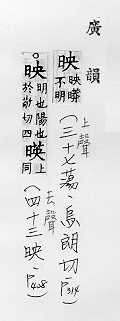 廣韻
映 映㬒不明
上聲
(三十七蕩・烏朗切・P314)
映 明也陽也於敬切四 暎 上同
去聲
(四十三映・P428)